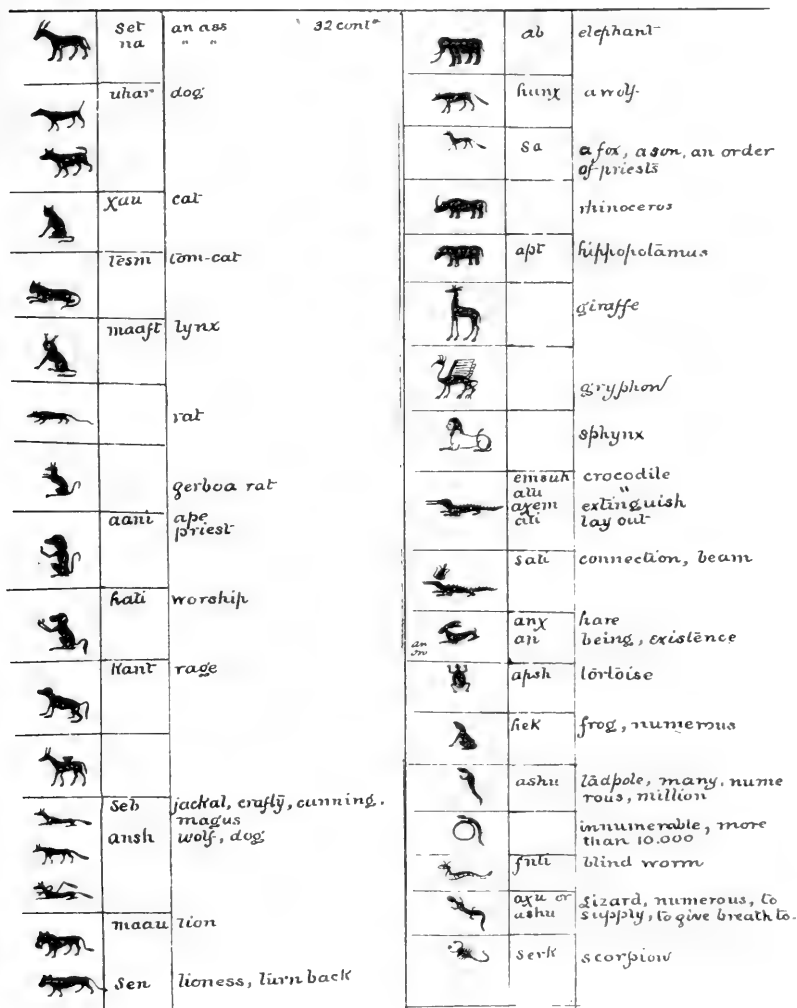 set an ass 32 cont^d
na " "
uhar dog
χau cat
tesm tom-cat
maaft lynx
rat
gerboa rat
aani ape
priest
hati worship
kant rage
seb jackal, crafty, cunning,
magus
ansh wolf, dog
maau lion
sen lioness, turn back
ab elephant
hunχ a wolf
sa a fox, a son, an order
of priests
rhinoceros
apt hippopotamus
giraffe
gryphon
sphynx
emsuh crocodile
atu "
aχem extinguish
citi lay out
sati connection, beam
anχ hare
an being, existence
apsh tortoise
hek frog, numerous
ashu tadpole, many, nume
rous, million
innumerable, more
than 10.000
fnti blind worm
aχu or lizard, numerous, to
ashu supply, to give breath to.
serk scorpion